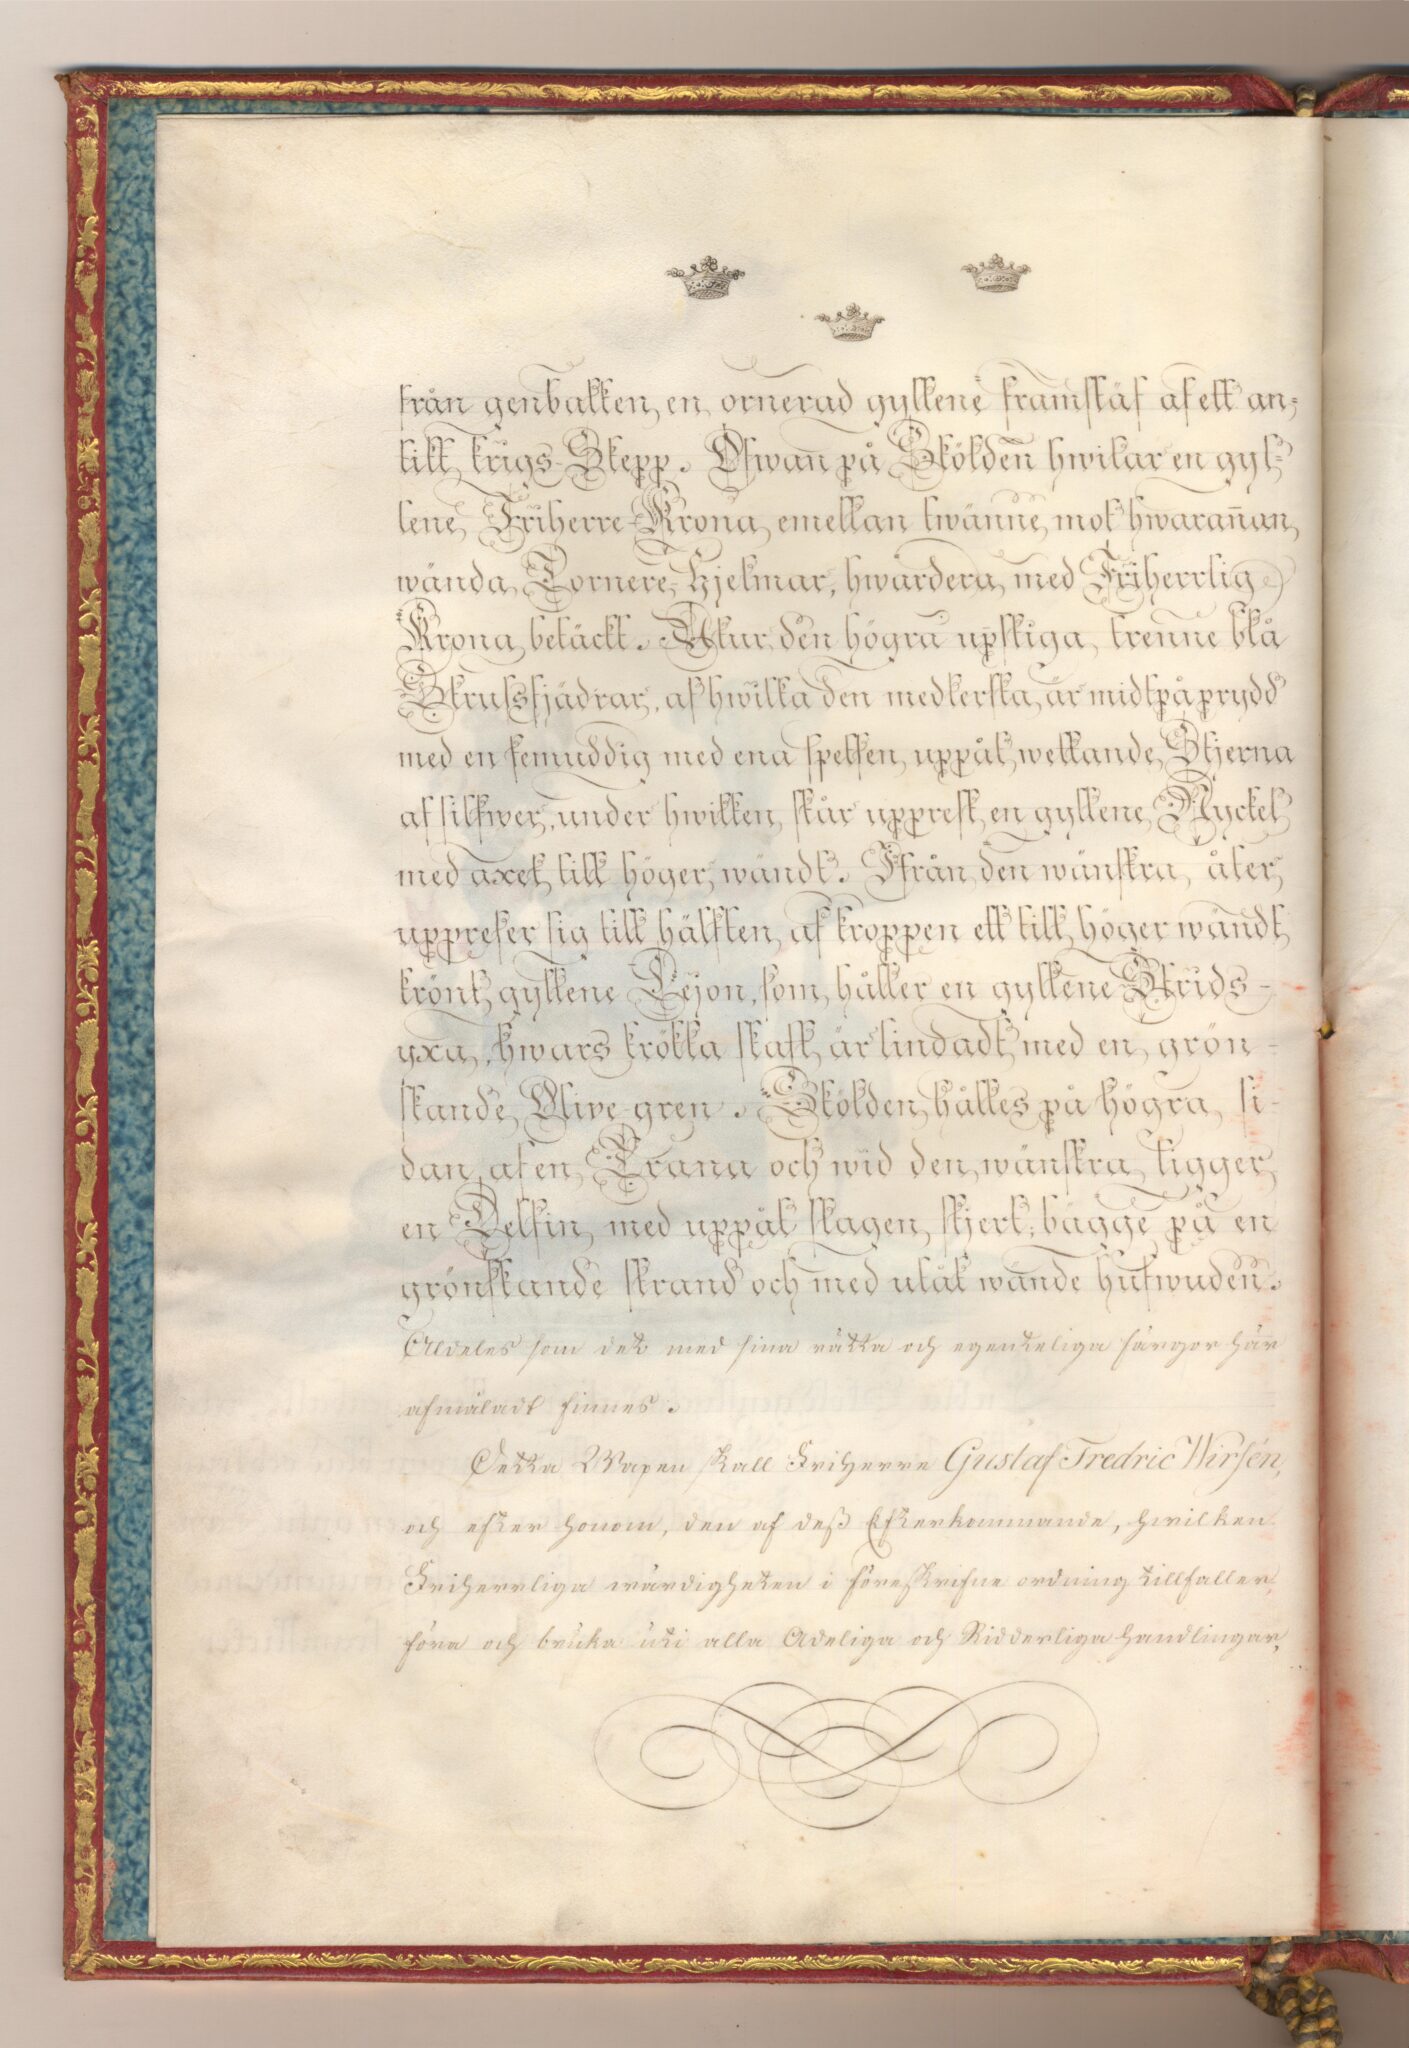 från genbalken, en ornerad gyllene framstäf af ett an-
tikt krigs-Skepp. Ofwan på Skölden hwilar en gyl-
lene Friherre-Krona, emellan twänne, mot hwarannan
wända Tornere-Hjelmar, hwardera med Friherrlig
Krona betäckt. Utur den högra upstiga trenne blå
Strutsfjädrar, af hwilka den medlersta är midtpå prydd
med en femuddig med ena spetsen uppåt wettande Stjerna
af silfwer, under hwilken står upprest en gyllene Nyckel
med axet till höger wändt. Ifrån den wänstra åter
uppreser sig till hälften af kroppen ett till höger wändt
krönt gyllene Lejon, som håller en gyllene Strids-
yxa, hwars krökta skaft är lindadt med en grön-
skande Olive-gren. Skölden hålles på högra si-
dan af en Trana och wid den wänstra ligger
en Delfin med uppåt slagen stjert; bägge på en
grönskande strand och med utåt wände hufwuden.
Aldeles som det med sina rätta och egenteliga färgor här
afmåladt finnes.
Detta Wapen skall Friherre Gustaf Fredric Wirsén,
och efter honom, den af deß Efterkommande, hwilken
Friherrliga wärdigheten i föreskrifne ordning tillfaller,
föra och bruka uti alla Adeliga och Ridderliga handlingar,